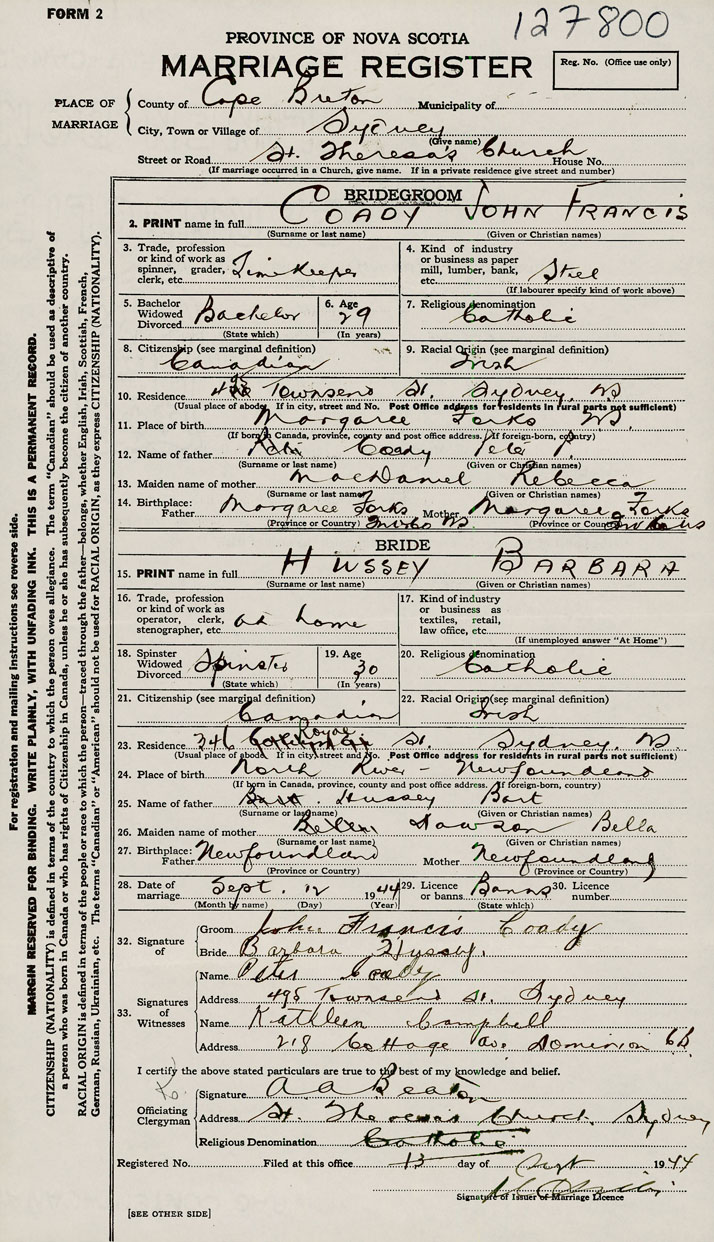 FORM 2
127800
PROVINCE OF NOVA SCOTIA
MARRIAGE REGISTER
Reg. No. (Office use only)
PLACE OF MARRIAGE
County of Cape Breton Municipality of
City, Town or Village of Sydney
(Give name)
Street or Road St. Theresa's Church House No.
(If marriage occurred in a Church, give name. If in a private residence give street and number)
BRIDEGROOM
2. PRINT name in full COADY JOHN FRANCIS
(Surname or last name) (Given or Christian names)
3. Trade, profession or kind of work as spinner, grader, clerk, etc. Timekeeper
4. Kind of industry or business as paper mill, lumber, bank, etc. Steel
(If labourer specify kind of work above)
5. Bachelor Widowed Divorced Bachelor
(State which)
6. Age 29
(In years)
7. Religious denomination Catholic
8. Citizenship (see marginal definition) Canadian
9. Racial Origin (see marginal definition) Irish
10. Residence 495 Townsend St. Sydney, NS
(Usual place of abode. If in city, street and No. Post Office address for residents in rural parts not sufficient)
11. Place of birth Margaree Forks NS.
(If born in Canada, province, county and post office address. If foreign-born, country)
12. Name of father Coady Peter
(Surname or last name) (Given or Christian names)
13. Maiden name of mother MacDaniel Rebecca
(Surname or last name) (Given or Christian names)
14. Birthplace: Father Margaree Forks Mother Margaree Forks
(Province or Country) (Province or Country)
BRIDE
15. PRINT name in full HUSSEY BARBARA
(Surname or last name) (Given or Christian names)
16. Trade, profession or kind of work as operator, clerk, stenographer, etc. at home
17. Kind of industry or business as textiles, retail, law office, etc.
(If unemployed answer "At Home")
18. Spinster Widowed Divorced Spinster
(State which)
19. Age 30
(In years)
20. Religious denomination Catholic
21. Citizenship (see marginal definition) Canadian
22. Racial Origin (see marginal definition) Irish
23. Residence 346 St. Sydney, NS
(Usual place of abode. If in city, street and No. Post Office address for residents in rural parts not sufficient)
24. Place of birth North River - Newfoundland
(If born in Canada, province, county and post office address. If foreign-born, country)
25. Name of father Hussey Bart
(Surname or last name) (Given or Christian names)
26. Maiden name of mother Dawson Bella
(Surname or last name) (Given or Christian names)
27. Birthplace: Father Newfoundland Mother Newfoundland
(Province or Country) (Province or Country)
28. Date of marriage Sept. 12 1944
(Month by name) (Day) (Year)
29. Licence or banns Banns
(State which)
30. Licence number
32. Signature of
Groom John Francis Coady
Bride Barbara Hussey.
33. Signatures of Witnesses
Name Peter Coady
Address 495 Townsend St. Sydney
Name Kathleen Campbell
Address 218 Cottage Ave. Dominion C.B.
I certify the above stated particulars are true to the best of my knowledge and belief.
Officiating Clergyman
Signature A A Beaton
Address St. Theresa's Church, Sydney
Religious Denomination Catholic
Registered No. Filed at this office 13 day of Sept 1944
Signature of Issuer of Marriage Licence
[SEE OTHER SIDE]
For registration and mailing instructions see reverse side.
MARGIN RESERVED FOR BINDING. WRITE PLAINLY, WITH UNFADING INK. THIS IS A PERMANENT RECORD.
CITIZENSHIP (NATIONALITY) is defined in terms of the country to which the person owes allegiance. The term "Canadian" should be used as descriptive of
a person who was born in Canada or who has rights of Citizenship in Canada, unless he or she has subsequently become the citizen of another country.
RACIAL ORIGIN is defined in terms of the people or race to which the person—traced through the father—belongs, whether English, Irish, Scottish, French,
German, Russian, Ukrainian, etc. The terms "Canadian" or "American" should not be used for RACIAL ORIGIN, as they express CITIZENSHIP (NATIONALITY).